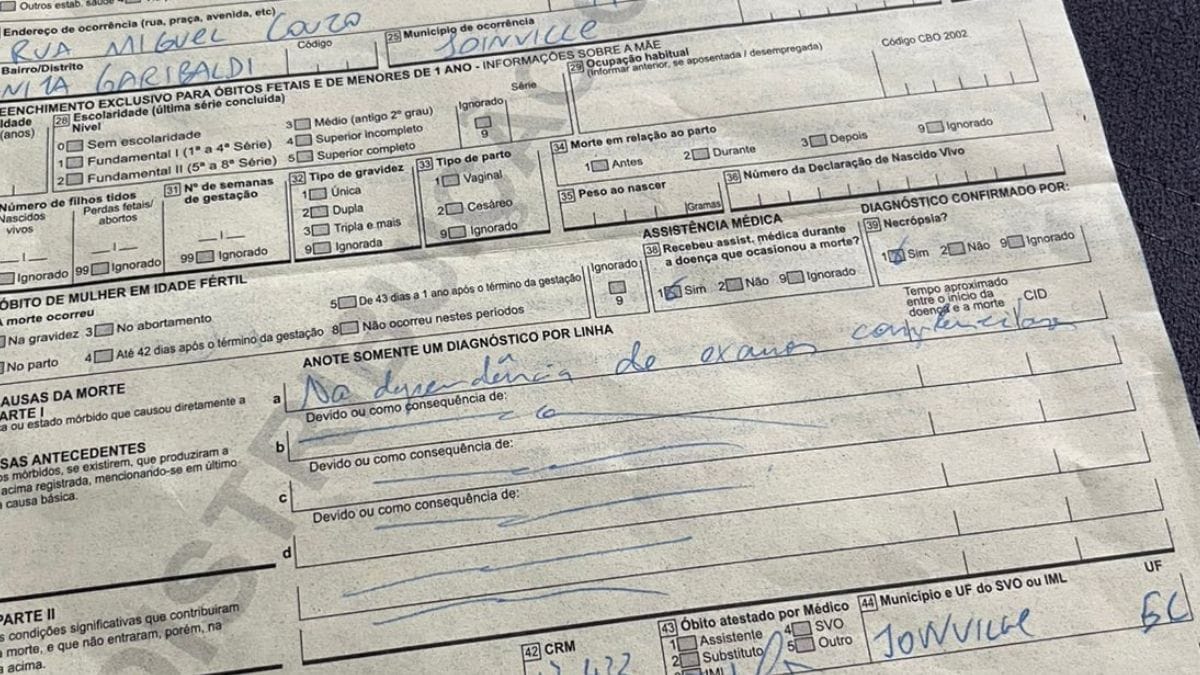 Outros estab.
Endereço de ocorrência (rua, praça, avenida, etc)
RUA MIGUEL COUTO
Código
25 Município de ocorrência
JOINVILLE
Bairro/Distrito
NITA GARIBALDI
EENCHIMENTO EXCLUSIVO PARA ÓBITOS FETAIS E DE MENORES DE 1 ANO - INFORMAÇÕES SOBRE A MÃE
Idade
(anos)
28 Escolaridade (última série concluída)
Nível
0 Sem escolaridade
1 Fundamental I (1ª a 4ª Série)
2 Fundamental II (5ª a 8ª Série)
3 Médio (antigo 2º grau)
4 Superior incompleto
5 Superior completo
Ignorado
9
Série
29 Ocupação habitual
(informar anterior, se aposentada / desempregada)
Código CBO 2002
Número de filhos tidos
Nascidos
vivos
Perdas fetais/
abortos
Ignorado
99 Ignorado
31 Nº de semanas
de gestação
99 Ignorado
32 Tipo de gravidez
1 Única
2 Dupla
3 Tripla e mais
9 Ignorada
33 Tipo de parto
1 Vaginal
2 Cesáreo
9 Ignorado
34 Morte em relação ao parto
1 Antes
2 Durante
3 Depois
9 Ignorado
35 Peso ao nascer
Gramas
36 Número da Declaração de Nascido Vivo
ÓBITO DE MULHER EM IDADE FÉRTIL
A morte ocorreu
Na gravidez
3 No abortamento
5 De 43 dias a 1 ano após o término da gestação
No parto
4 Até 42 dias após o término da gestação
8 Não ocorreu nestes períodos
Ignorado
9
ASSISTÊNCIA MÉDICA
38 Recebeu assist. médica durante
a doença que ocasionou a morte?
1 Sim 2 Não 9 Ignorado
DIAGNÓSTICO CONFIRMADO POR:
39 Necrópsia?
1 Sim 2 Não 9 Ignorado
AUSAS DA MORTE
ARTE I
a ou estado mórbido que causou diretamente a
ANOTE SOMENTE UM DIAGNÓSTICO POR LINHA
Tempo aproximado
entre o início da
doença e a morte
CID
a Na dependência de exames complementares
Devido ou como consequência de:
SAS ANTECEDENTES
os mórbidos, se existirem, que produziram a
acima registrada, mencionando-se em último
a causa básica.
b
Devido ou como consequência de:
c
Devido ou como consequência de:
d
PARTE II
s condições significativas que contribuiram
a morte, e que não entraram, porém, na
a acima.
42 CRM
43 Óbito atestado por Médico
1 Assistente
2 Substituto
IML
4 SVO
5 Outro
44 Município e UF do SVO ou IML
JOINVILLE
UF
SC